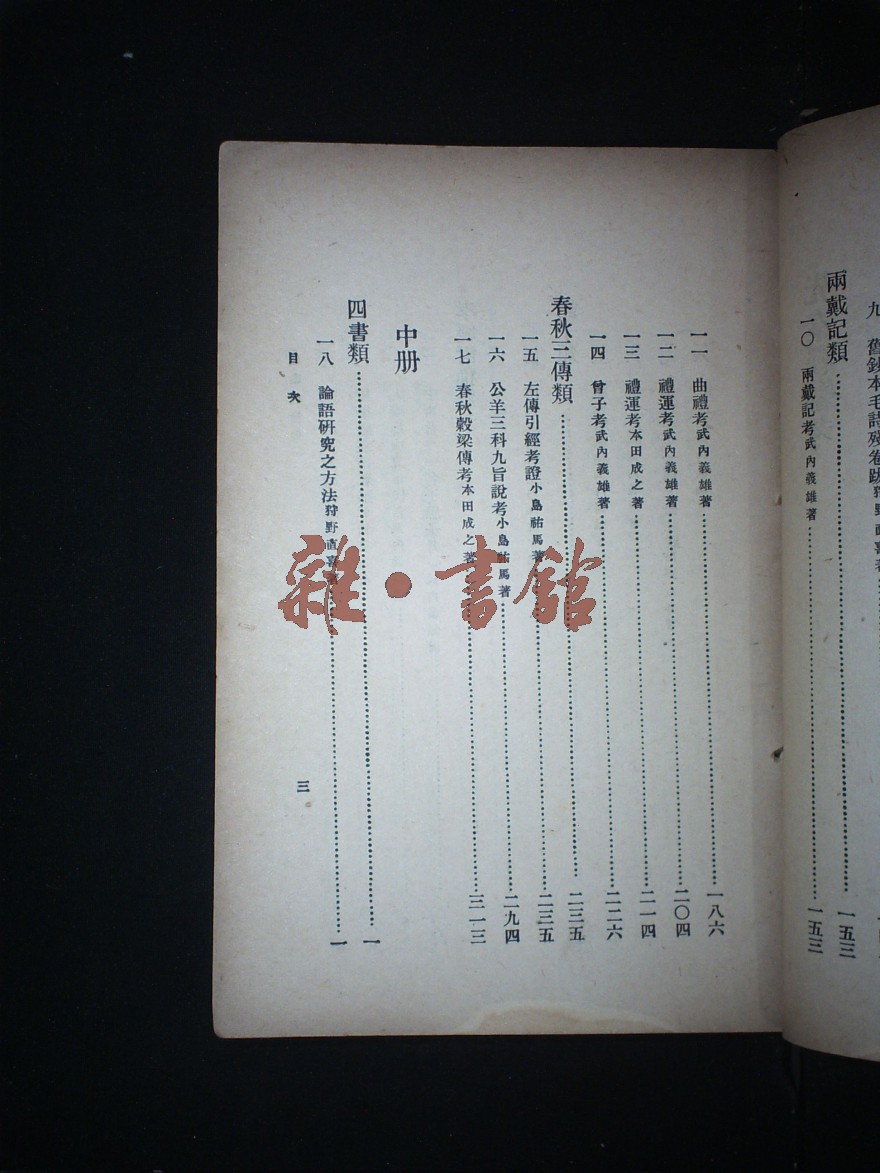 九　舊鈔本毛詩殘卷跋狩野直喜著
兩戴記類……一五三
一〇　兩戴記考武內義雄著……一五三
一一　曲禮考武內義雄著……一八六
一二　禮運考武內義雄著……二〇四
一三　禮運考本田成之著……二一四
一四　曾子考武內義雄著……二二六
春秋三傳類……二三五
一五　左傳引經考證小島祐馬著……二三五
一六　公羊三科九旨說考小島祐馬著……二九四
一七　春秋穀梁傳考本田成之著……三一三
中册
四書類……一
一八　論語硏究之方法狩野直喜著……一
目次
三
雜·書館